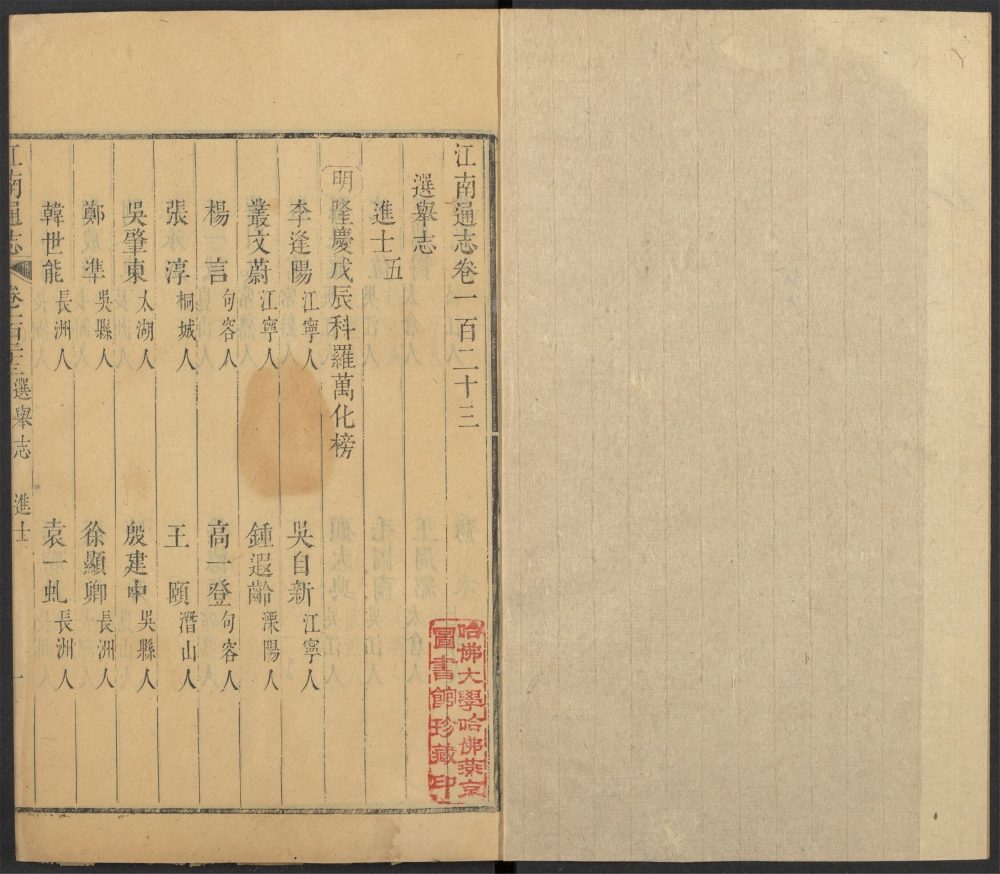 江南通志卷一百二十三
選舉志
進士五
明隆慶戊辰科羅萬化榜
李逢陽江寧人 吳自新江寧人
叢文蔚江寧人 鍾遐齡溧陽人
楊言句容人 高一登句容人
張淳桐城人 王頤潛山人
吳肇東太湖人 殷建中吳縣人
鄭準吳縣人 徐顯卿長洲人
韓世能長洲人 袁一虬長洲人
江南通志 卷一百二十三 選舉志 進士 一
哈佛大學哈佛燕京
圖書館珍藏印